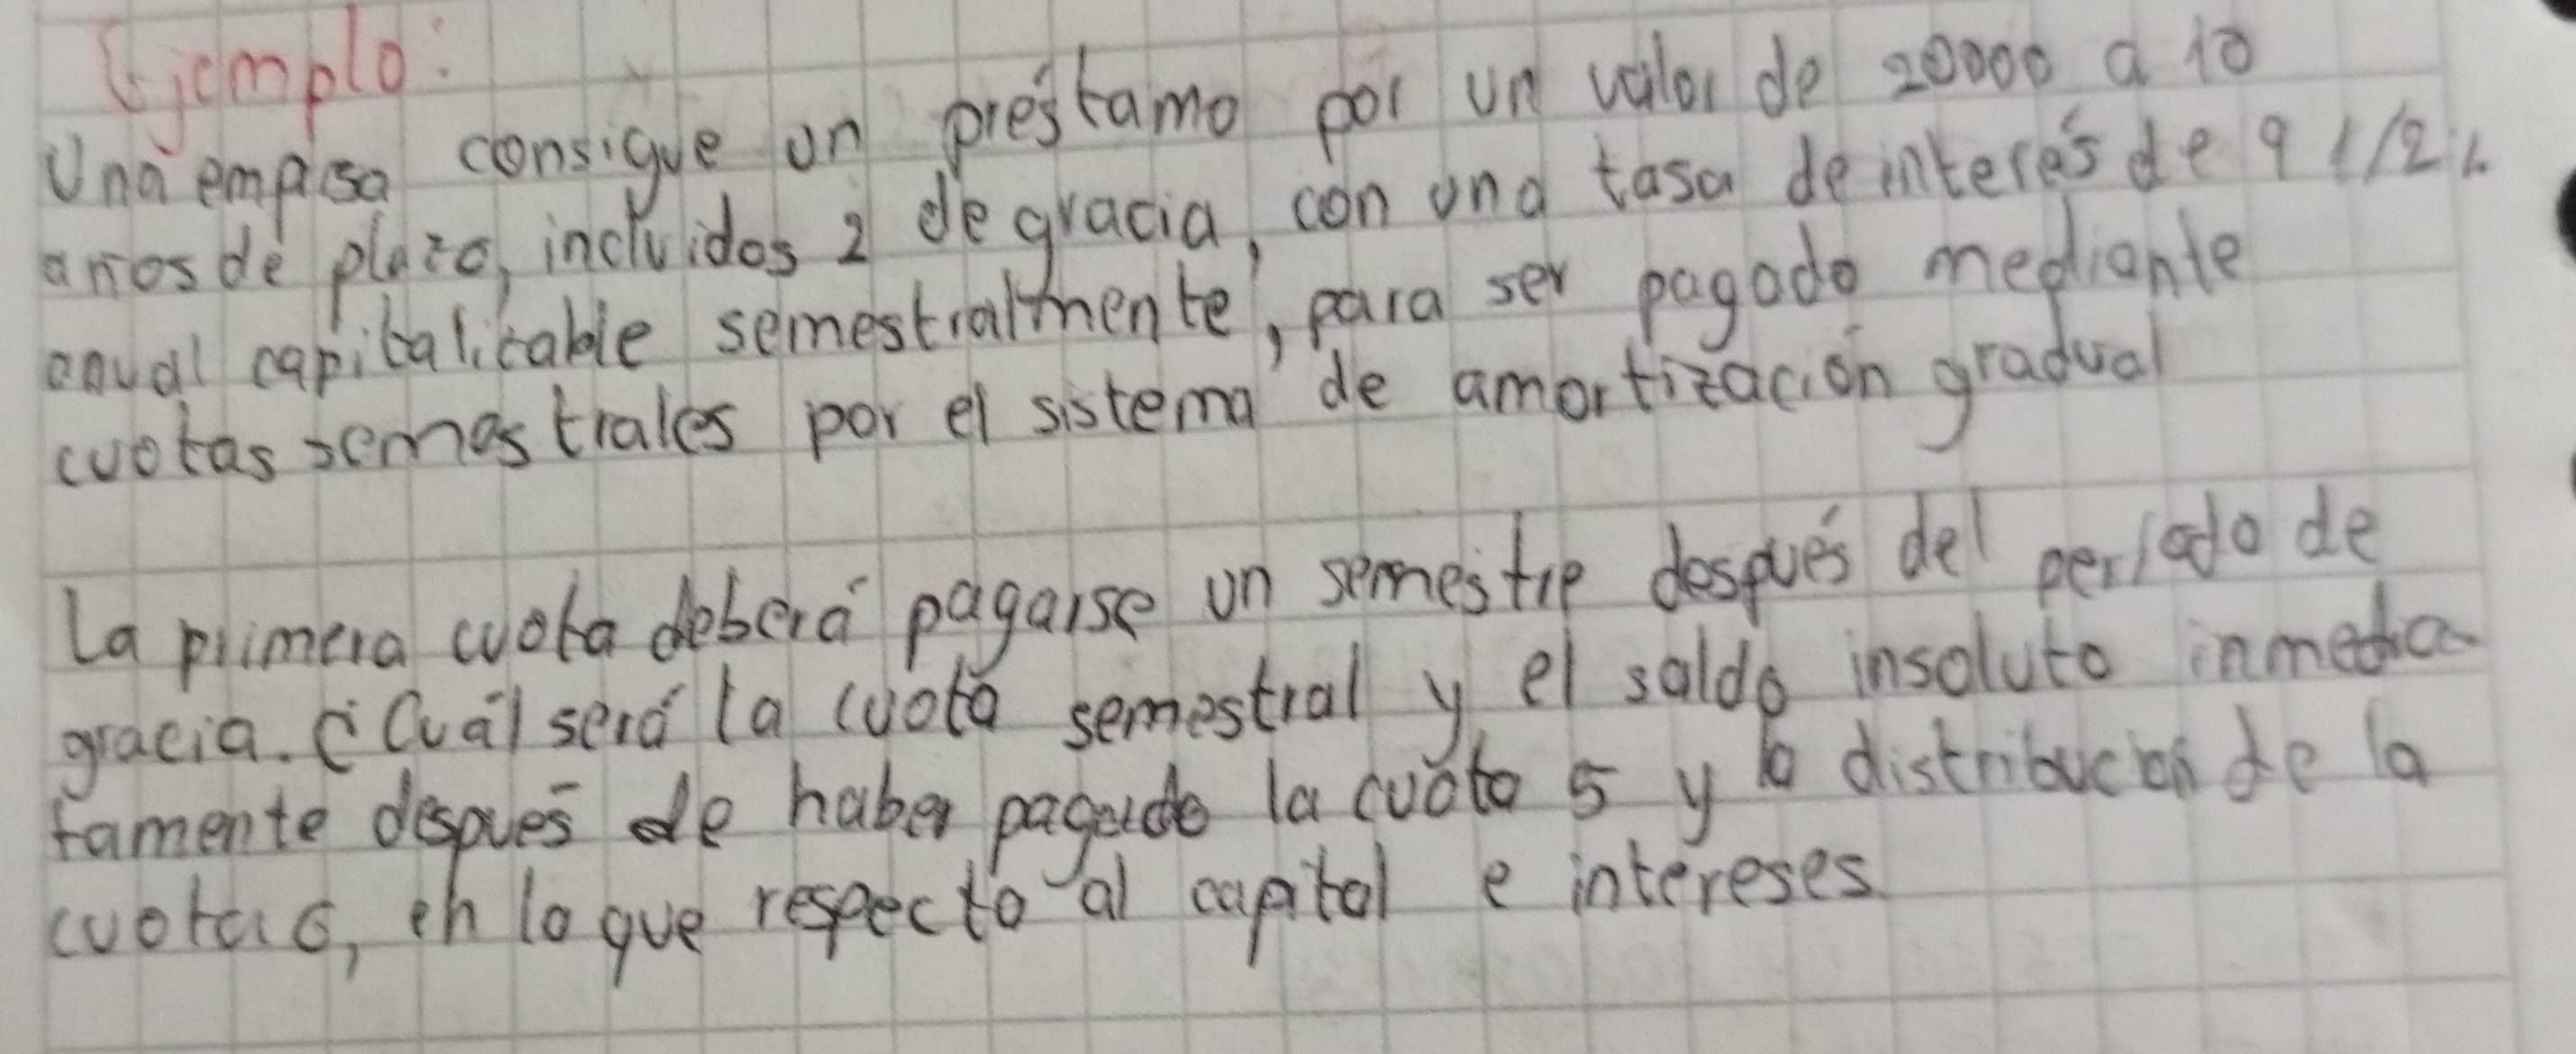 Ejemplo:
Una empresa consigue un préstamo por un valor de 20000 a 10
años de plazo, incluidos 2 de gracia, con una tasa de interés de 9 1/2%
anual capitalizable semestralmente, para ser pagado mediante
cuotas semestrales por el sistema de amortización gradual
La primera cuota deberá pagarse un semestre después del periodo de
gracia. ¿Cuál será la cuota semestral y el saldo insoluto inmedia-
tamente después de haber pagado la cuota 5 y la distribución de la
cuota 6, en lo que respecto al capital e intereses